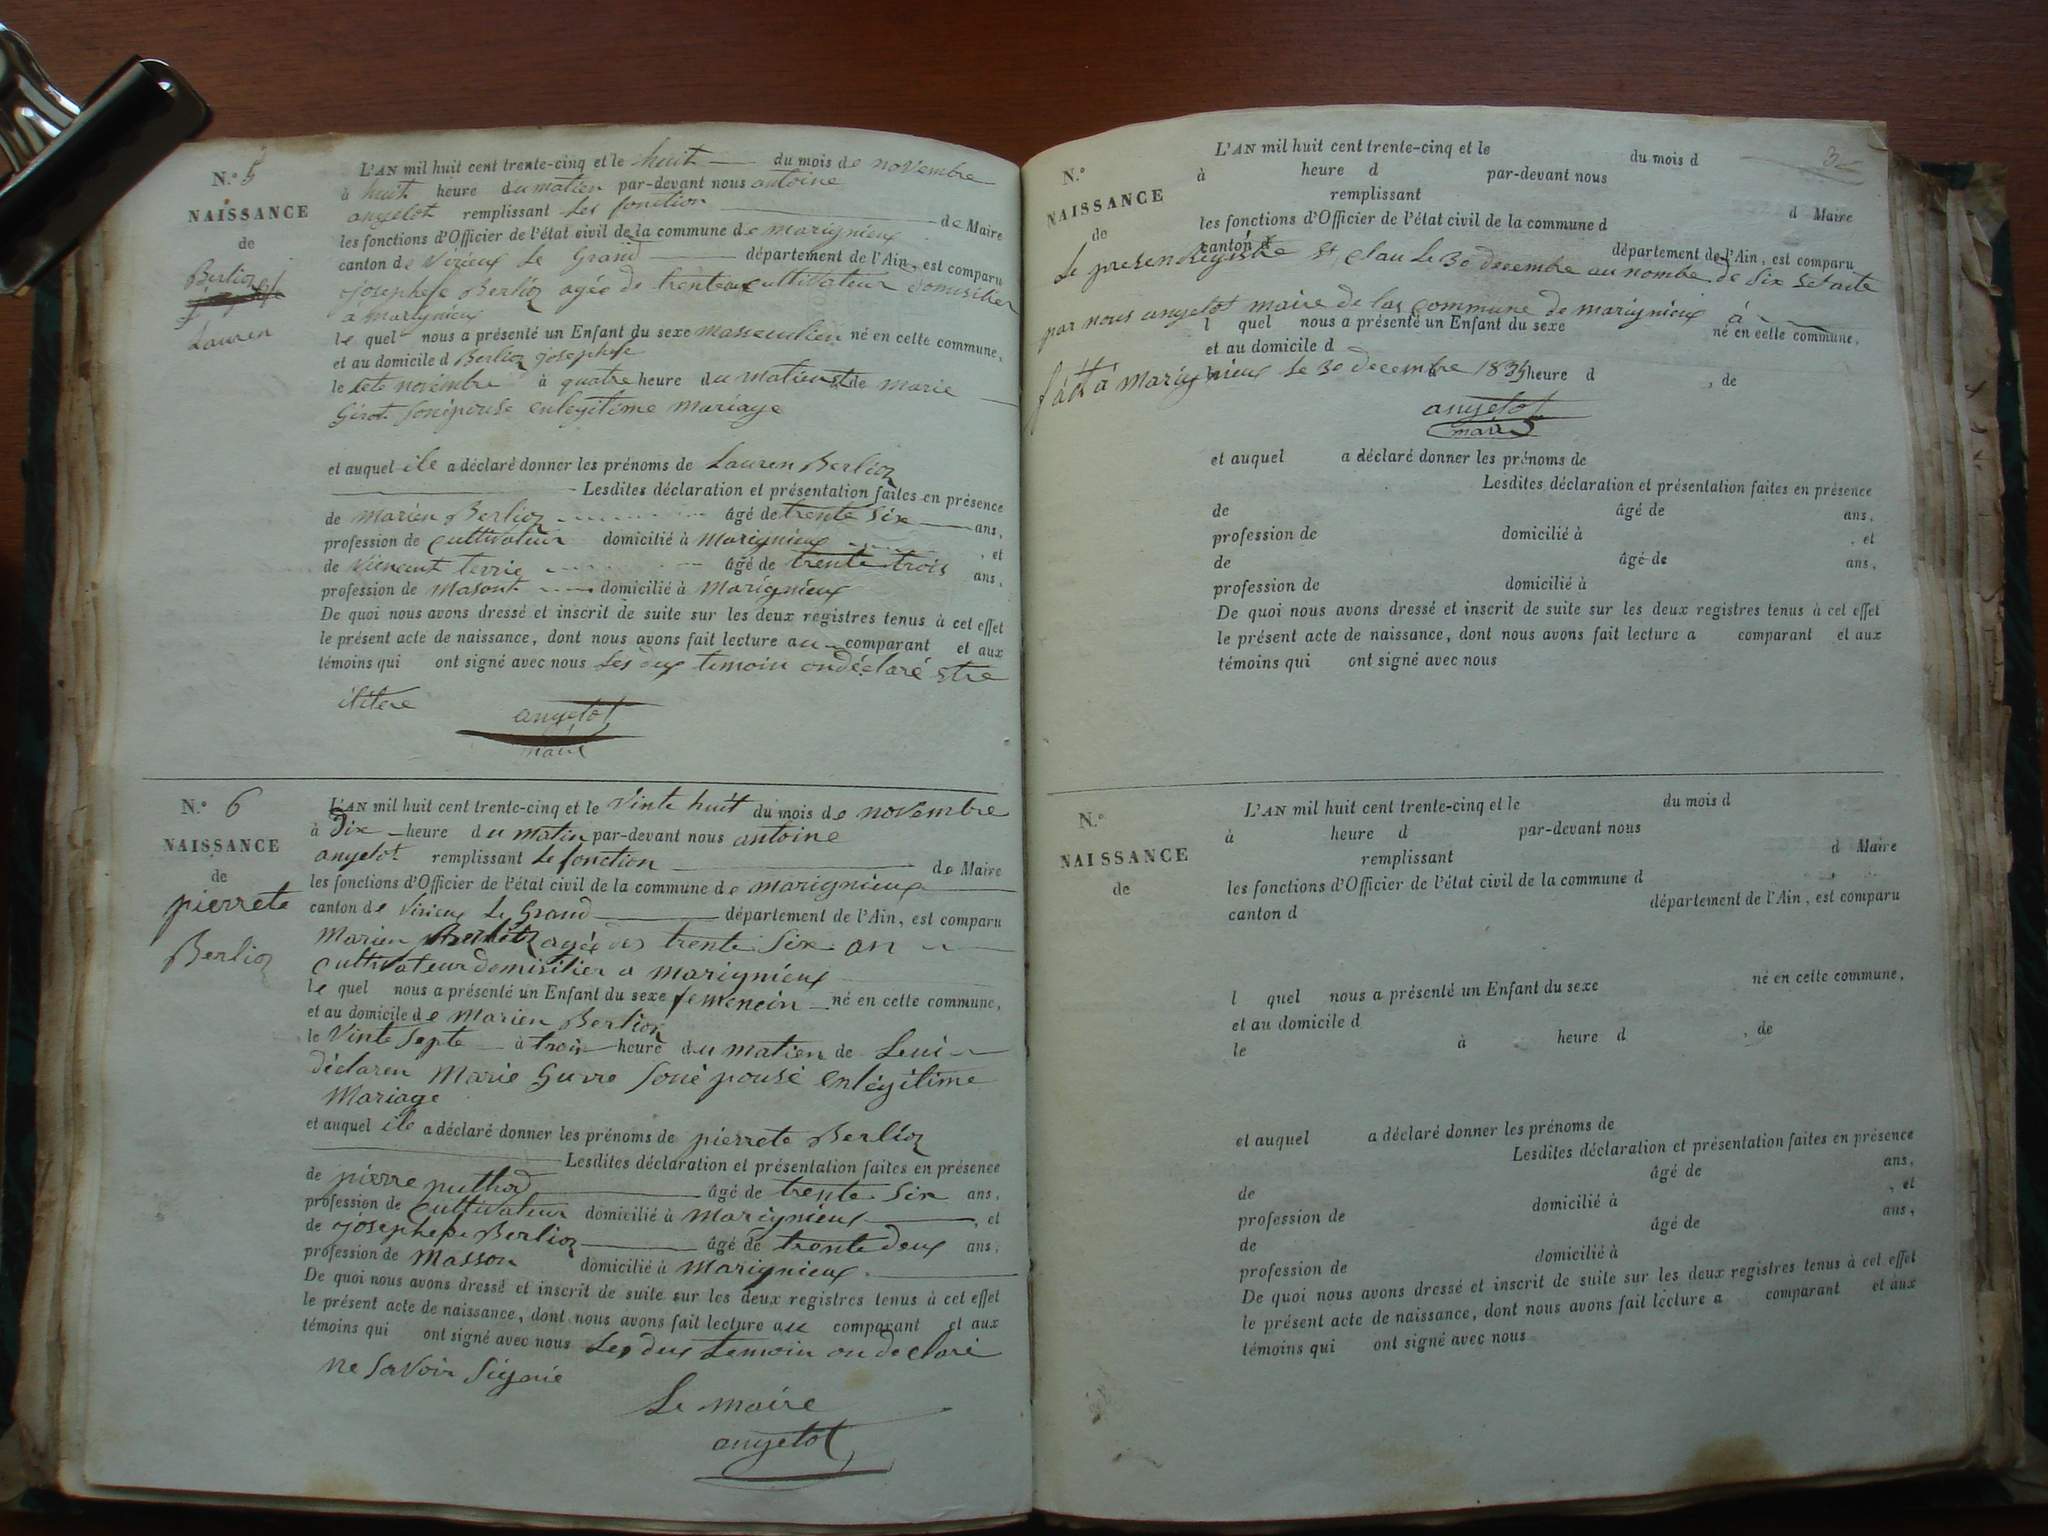 N.º 5
NAISSANCE
de
Berlioz
Lauren
L'AN mil huit cent trente-cinq et le huit du mois de novembre
à huit heure du matien par-devant nous antoine
angelot remplissant les fonction de Maire
les fonctions d'Officier de l'état civil de la commune de marignieux
canton de Virieux Le Grand département de l'Ain, est comparu
josephe Berlioz agée de trente cultivateur domisilier
a marignieux
le quel nous a présenté un Enfant du sexe masseulien né en cette commune,
et au domicile d Berlioz josephe
le sete novembre à quatre heure du matien et de marie
Girot son épouse enlegitime mariage
et auquel ile a déclaré donner les prénoms de Lauren Berlioz
Lesdites déclaration et présentation faites en présence
de marien Berlioz âgé de trente six ans,
profession de cultivateur domicilié à marignieux , et
de Vincent terrie âgé de trente trois ans,
profession de masont domicilié à marignieux
De quoi nous avons dressé et inscrit de suite sur les deux registres tenus à cet effet
le présent acte de naissance, dont nous avons fait lecture au comparant et aux
témoins qui ont signé avec nous Les deux temoin on déclaré etre
ilitere
angelot
maire
N.º 6
NAISSANCE
de
pierrete
Berlioz
L'AN mil huit cent trente-cinq et le Vinte huit du mois de novembre
à Dix heure du matin par-devant nous antoine
angelot remplissant le fonction de Maire
les fonctions d'Officier de l'état civil de la commune de marignieux
canton de Virieux Le Grand département de l'Ain, est comparu
Marien Berlioz agée des trente Six an
cultivateur demisilier a marignieux
le quel nous a présenté un Enfant du sexe femenein né en cette commune,
et au domicile de Marien Berlioz
le Vinte Septe à trois heure du matien de Lui
déclaren Marie Gurre Soné pousé enlégitime
Mariage
et auquel ile a déclaré donner les prénoms de pierrete Berlioz
Lesdites déclaration et présentation faites en présence
de pierre puthod âgé de trente Six ans,
profession de Cultivateur domicilié à Marignieux , et
de josephe Berlioz âgé de trente deux ans,
profession de Masson domicilié à Marignieux.
De quoi nous avons dressé et inscrit de suite sur les deux registres tenus à cet effet
le présent acte de naissance, dont nous avons fait lecture au comparant et aux
témoins qui ont signé avec nous Les deux temoin on declaré
ne savoir Signié
Le maire
angelot
N.º
NAISSANCE
de
L'AN mil huit cent trente-cinq et le du mois d
à heure d par-devant nous
remplissant d Maire
les fonctions d'Officier de l'état civil de la commune d
canton d département de l'Ain, est comparu
Le present Registre et clau Le 30 decembre au nombe de Six setacte
par nous angelot maire de las commune de marignieux à
l quel nous a présenté un Enfant du sexe né en cette commune,
et au domicile d
fait à Marignieux Le 30 decembre 1835 heure d , de
angelot
maire
et auquel a déclaré donner les prénoms de
Lesdites déclaration et présentation faites en présence
de âgé de ans,
profession de domicilié à , et
de âgé de ans,
profession de domicilié à
De quoi nous avons dressé et inscrit de suite sur les deux registres tenus à cet effet
le présent acte de naissance, dont nous avons fait lecture a comparant et aux
témoins qui ont signé avec nous
N.º
NAISSANCE
de
L'AN mil huit cent trente-cinq et le du mois d
à heure d par-devant nous
remplissant d Maire
les fonctions d'Officier de l'état civil de la commune d
canton d département de l'Ain, est comparu
l quel nous a présenté un Enfant du sexe né en cette commune,
et au domicile d
le à heure d , de
et auquel a déclaré donner les prénoms de
Lesdites déclaration et présentation faites en présence
de âgé de ans,
profession de domicilié à , et
de âgé de ans,
profession de domicilié à
De quoi nous avons dressé et inscrit de suite sur les deux registres tenus à cet effet
le présent acte de naissance, dont nous avons fait lecture a comparant et aux
témoins qui ont signé avec nous